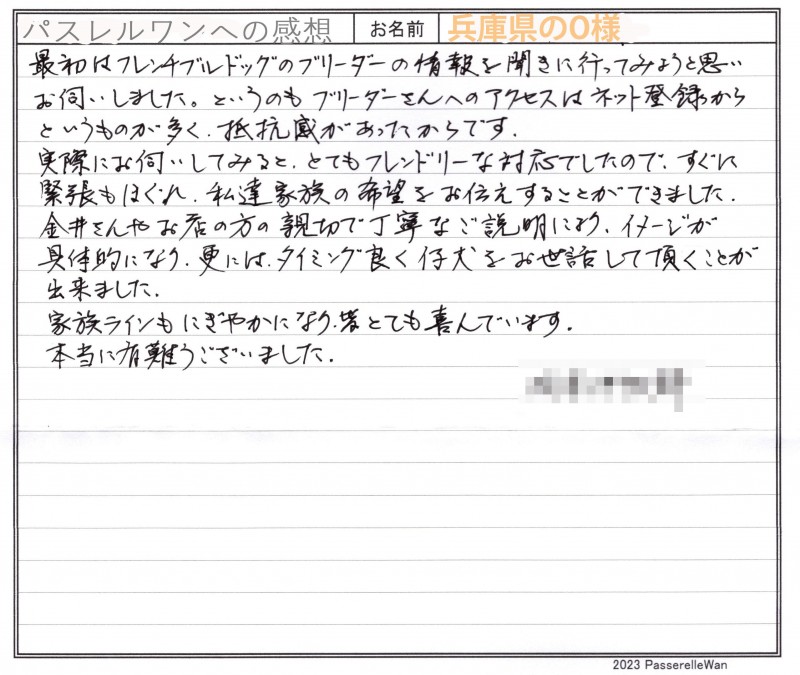 パスレルワンへの感想 お名前 兵庫県のO様
最初はフレンチブルドッグのブリーダーの情報を聞きに行ってみようと思い
お伺いしました。というのもブリーダーさんへのアクセスはネット登録から
というものが多く、抵抗感があったからです.
実際にお伺いしてみると、とてもフレンドリーな対応でしたので、すぐに
緊張もほぐれ、私達家族の希望をお伝えすることができました.
金井さんやお店の方の親切で丁寧なご説明により、イメージが
具体的になり、更には、タイミング良く仔犬をお世話して頂くことが
出来ました.
家族ラインもにぎやかになり、皆とても喜んでいます.
本当に有難うございました.
2023 PasserelleWan